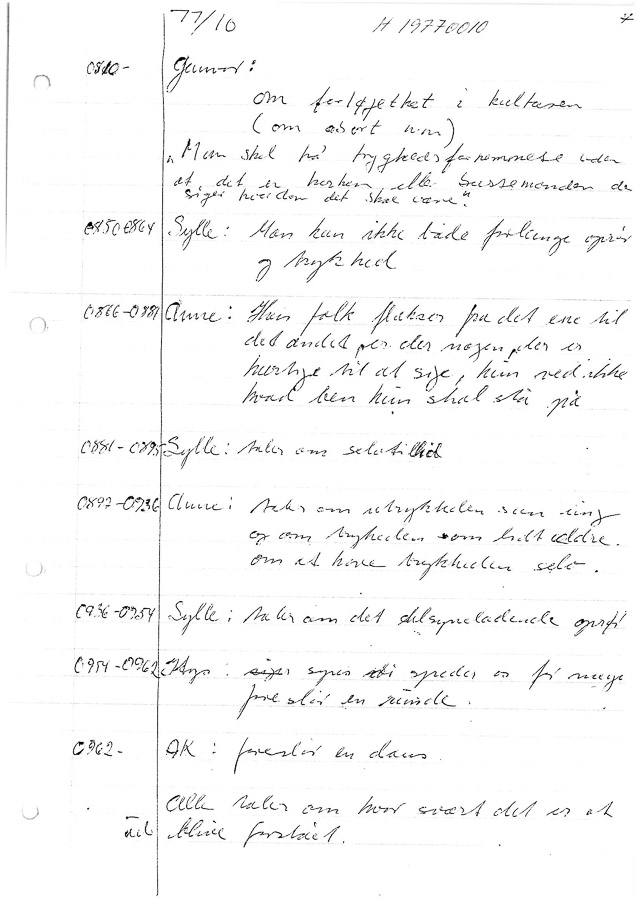 77/10 H 19770010 4
0810- Gunvor:
om forløjethed i kulturen
(om abort mm)
"Man skal ha' tryghedsfornemmelse uden
at det er herken, elle bussemanden der
siger hvordan det skal være"
0850-0864 Sylle: Man kan ikke både forlange oprør
og tryghed
0866-0881 Anne: Hun folk flakser fra det ene til
det andet, der nogen, der er
hurtige til at sige, hun ved ikke
hvad ben hun skal stå på
0881-0895 Sylle: taler om selvtillid
0897-0936 Anne: taler om utrygheden som ung
og om trygheden som lidt ældre.
om at have trygheden selv.
0936-0954 Sylle: taler om det tilsyneladende oprør
0954-0962 : synes vi spreder os for meget
foreslår en runde.
0962- AK: foreslår en dans
Alle taler om hvor svært det er at
blive forstået.